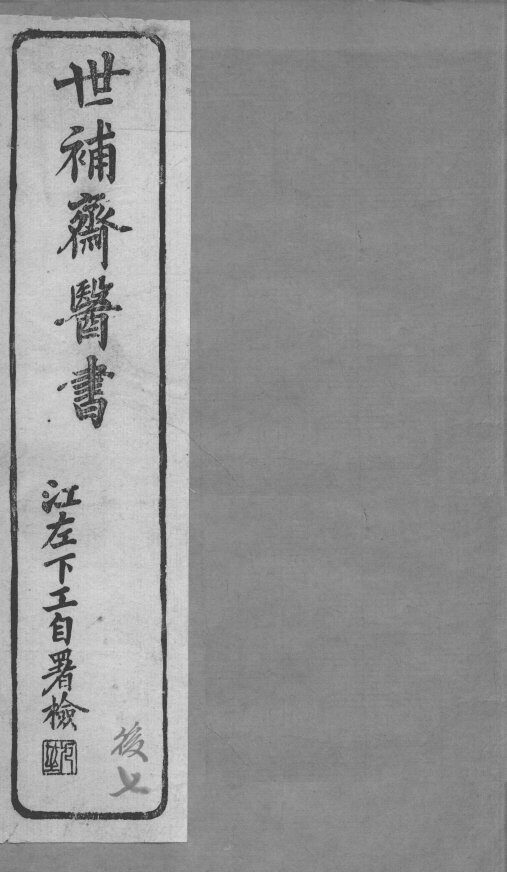 世補齋醫書
江左下工自署檢
後七